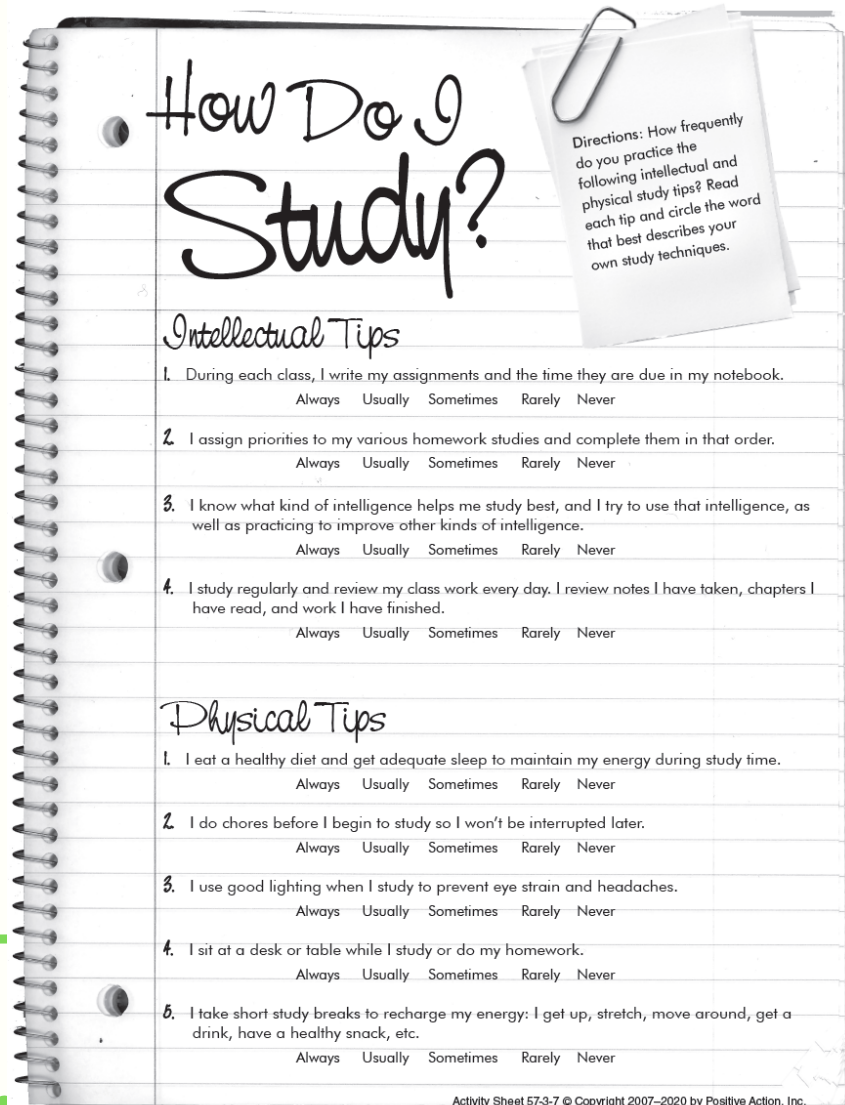 How Do I
Study?
Directions: How frequently
do you practice the
following intellectual and
physical study tips? Read
each tip and circle the word
that best describes your
own study techniques.
Intellectual Tips
1. During each class, I write my assignments and the time they are due in my notebook.
Always Usually Sometimes Rarely Never
2. I assign priorities to my various homework studies and complete them in that order.
Always Usually Sometimes Rarely Never
3. I know what kind of intelligence helps me study best, and I try to use that intelligence, as
well as practicing to improve other kinds of intelligence.
Always Usually Sometimes Rarely Never
4. I study regularly and review my class work every day. I review notes I have taken, chapters I
have read, and work I have finished.
Always Usually Sometimes Rarely Never
Physical Tips
1. I eat a healthy diet and get adequate sleep to maintain my energy during study time.
Always Usually Sometimes Rarely Never
2. I do chores before I begin to study so I won't be interrupted later.
Always Usually Sometimes Rarely Never
3. I use good lighting when I study to prevent eye strain and headaches.
Always Usually Sometimes Rarely Never
4. I sit at a desk or table while I study or do my homework.
Always Usually Sometimes Rarely Never
5. I take short study breaks to recharge my energy: I get up, stretch, move around, get a
drink, have a healthy snack, etc.
Always Usually Sometimes Rarely Never
Activity Sheet 57-3-7 © Copyright 2007–2020 by Positive Action, Inc.